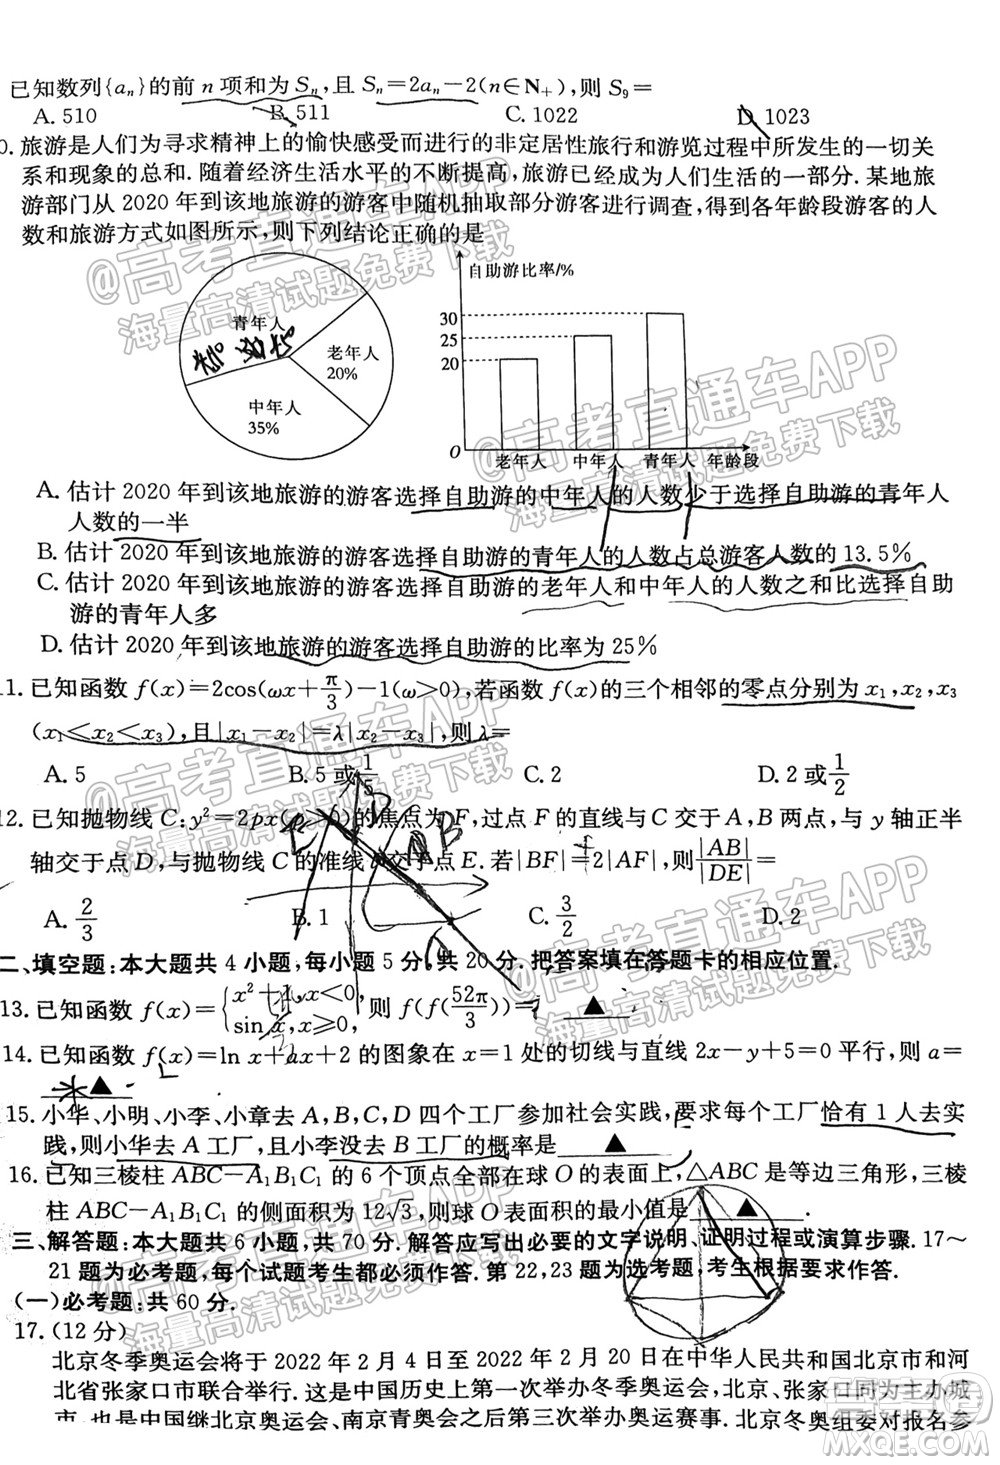 已知数列{aₙ}的前 n 项和为 Sₙ,且 Sₙ=2aₙ-2(n∈N₊),则 S₉=
A. 510 B. 511 C. 1022 D. 1023
0. 旅游是人们为寻求精神上的愉快感受而进行的非定居性旅行和游览过程中所发生的一切关
系和现象的总和. 随着经济生活水平的不断提高,旅游已经成为人们生活的一部分. 某地旅
游部门从 2020 年到该地旅游的游客中随机抽取部分游客进行调查,得到各年龄段游客的人
数和旅游方式如图所示,则下列结论正确的是
青年人
老年人
20%
中年人
35%
自助游比率/%
30
25
20
O
老年人 中年人 青年人 年龄段
A. 估计 2020 年到该地旅游的游客选择自助游的中年人的人数少于选择自助游的青年人
人数的一半
B. 估计 2020 年到该地旅游的游客选择自助游的青年人的人数占总游客人数的 13.5%
C. 估计 2020 年到该地旅游的游客选择自助游的老年人和中年人的人数之和比选择自助
游的青年人多
D. 估计 2020 年到该地旅游的游客选择自助游的比率为 25%
1. 已知函数 f(x)=2cos(ωx+π/3)-1(ω>0),若函数 f(x)的三个相邻的零点分别为 x₁,x₂,x₃
(x₁<x₂<x₃),且|x₁-x₂|=λ|x₂-x₃|,则 λ=
A. 5 B. 5 或 1/5 C. 2 D. 2 或 1/2
12. 已知抛物线 C:y²=2px(p>0)的焦点为 F,过点 F 的直线与 C 交于 A,B 两点,与 y 轴正半
轴交于点 D,与抛物线 C 的准线 l 交于点 E. 若|BF|=2|AF|,则|AB|/|DE|=
A. 2/3 B. 1 C. 3/2 D. 2
二、填空题:本大题共 4 小题,每小题 5 分,共 20 分. 把答案填在答题卡的相应位置.
13. 已知函数 f(x)={x²+1,x<0, sin x,x≥0, 则 f(f(52π/3))= ▲ .
14. 已知函数 f(x)=ln x+ax+2 的图象在 x=1 处的切线与直线 2x-y+5=0 平行,则 a=
▲ .
15. 小华、小明、小李、小章去 A,B,C,D 四个工厂参加社会实践,要求每个工厂恰有 1 人去实
践,则小华去 A 工厂,且小李没去 B 工厂的概率是 ▲ .
16. 已知三棱柱 ABC-A₁B₁C₁ 的 6 个顶点全部在球 O 的表面上,△ABC 是等边三角形,三棱
柱 ABC-A₁B₁C₁ 的体积为 12√3,则球 O 表面积的最小值是 ▲ .
三、解答题:本大题共 6 小题,共 70 分. 解答应写出必要的文字说明、证明过程或演算步骤. 17~
21 题为必考题,每个试题考生都必须作答. 第 22,23 题为选考题,考生根据要求作答.
(一)必考题:共 60 分.
17. (12 分)
北京冬季奥运会将于 2022 年 2 月 4 日至 2022 年 2 月 20 日在中华人民共和国北京市和河
北省张家口市联合举行. 这是中国历史上第一次举办冬季奥运会,北京、张家口同为主办城
市,也是中国继北京奥运会、南京青奥会之后第三次举办奥运赛事. 北京冬奥组委对报名参
@高考直通车APP
海量高清试题免费下载
@高考直通车APP
海量高清试题免费下载
@高考直通车APP
海量高清试题免费下载
@高考直通车APP
海量高清试题免费下载
@高考直通车APP
海量高清试题免费下载
答案圈
MXQE.COM